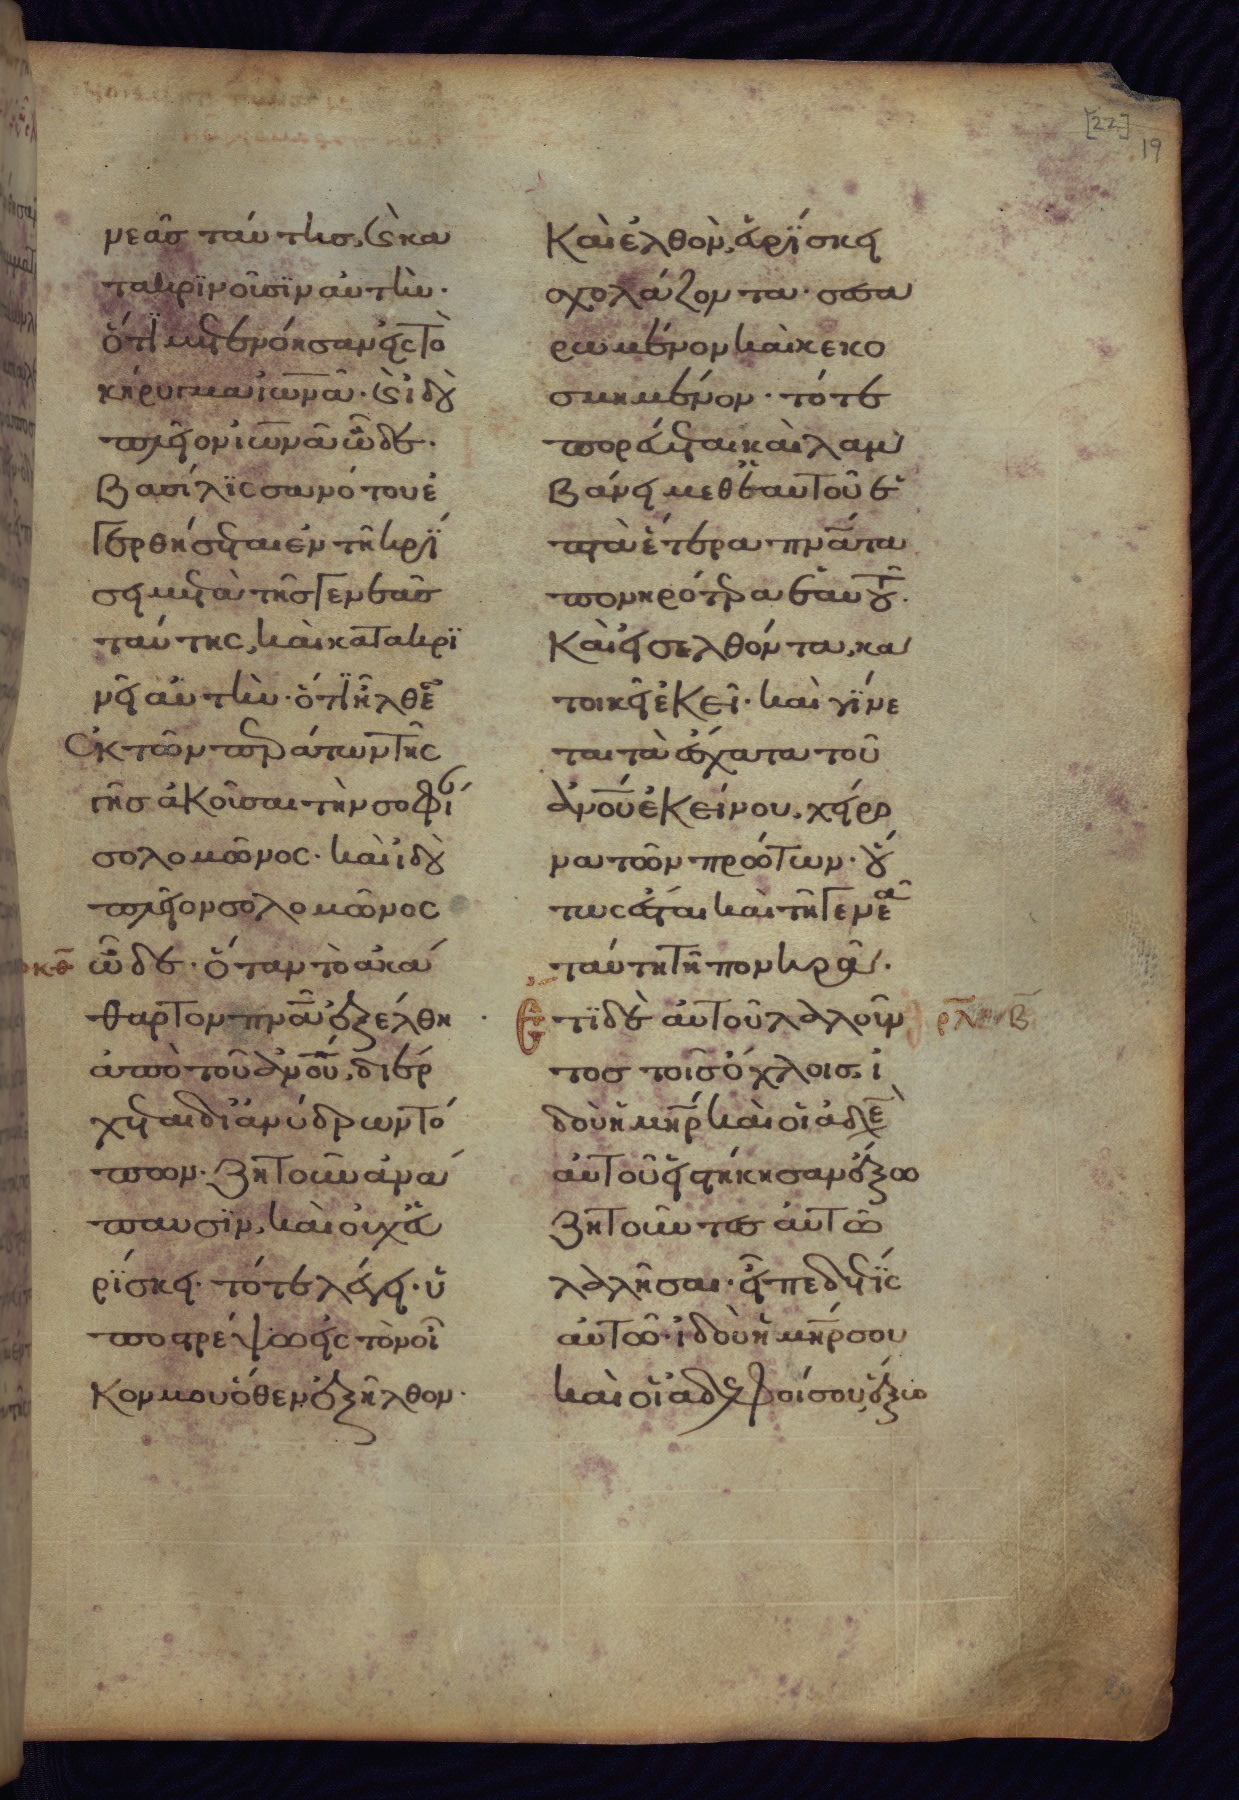 [22]
19
νεᾶσ ταύτησ, καὶ κα
τακρϊνοῦσϊν αὐτὴν·
ὅτϊ μετενόησαν εἰς τὸ
κήρυγμα ἰωνᾶ· καὶ ἰδοὺ
πλεῖον ἰωνᾶ ὧδε·
Βασίλϊσσα νότου ἐ
γερθήσεται ἐν τῆ κρΐ
σει μετὰ τῆσ γενεᾶσ
ταύτης, καὶ κατακρϊ
νεῖ αὐτὴν· ὅτϊ ἦλθεν
ἐκ τῶν περάτων τῆς
γῆσ ἀκοῦσαι τὴν σοφί
σολομῶνος· καὶ ἰδοὺ
πλεῖον σολομῶνος
ρκθ ὧδε· ὅταν τὸ ἀκά
θαρτον πνᾶ ἐξέλθη
ἀπὸ τοῦ ἀνου, διέρ
χεται δι ἀνύδρων τό
πων· ζητοῦν ἀνά
παυσϊν, καὶ οὐχ εὑ
ρΐσκει· τότε λέγει· ὑ
ποστρέψω εἰς τὸν οἶ
κον μου ὅθεν ἐξῆλθον·
Καὶ ἐλθὸν, εὑρΐσκει
σχολάζοντα· σεσα
ρωμένον καὶ κεκο
σμημένον· τότε
πορεύεται καὶ λαμ
βάνει μεθ ἑαυτοῦ ἑ
πτὰ ἕτερα πνᾶτα
πονηρότερα ἑαυτοῦ·
Καὶ εἰσελθόντα, κα
τοικεῖ ἐκεῖ· καὶ γίνε
ται τὰ ἔσχατα τοῦ
ἀνου ἐκείνου, χείρο
να τῶν πρώτων· οὕ
τως ἔσται καὶ τῆ γενεᾶ
ταύτη τῆ πονηρᾶ·
Ἔτϊ δὲ αὐτοῦ λαλοῦν ρλ Β
τοσ τοῖσ ὄχλοισ, ἰ
δοὺ ἡ μηρ καὶ οἱ ἀδελ
αὐτοῦ εἱστήκησαν ἔξω
ζητοῦντεσ αὐτῶ
λαλῆσαι· εἶπε δέ τϊς
αὐτῶ· ἰδοὺ ἡ μηρ σου
καὶ οἱ ἀδελφοί σου, ἔξω